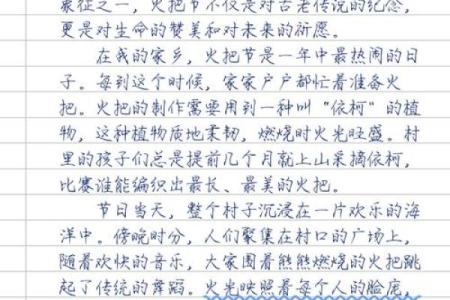 象征之一，火把节不仅是对古老传说的纪念，
更是对生命的赞美和对未来的祈愿。
在我的家乡，火把节是一年中最热闹的日
子。每到这个时候，家家户户都忙着准备火
把。火把的制作需要用到一种叫“依柯”的植
物，这种植物质地柔韧，燃烧时火光旺盛。村
里的孩子们总是提前几个月就上山采摘依柯，
比赛谁能编织出最长、最美的火把。
节日当天，整个村子沉浸在一片欢乐的海
洋中。傍晚时分，人们聚集在村口的广场上，
随着欢快的音乐，大家围着熊熊燃烧的火把跳
起了传统的舞蹈。火光映照着每个人的脸庞，